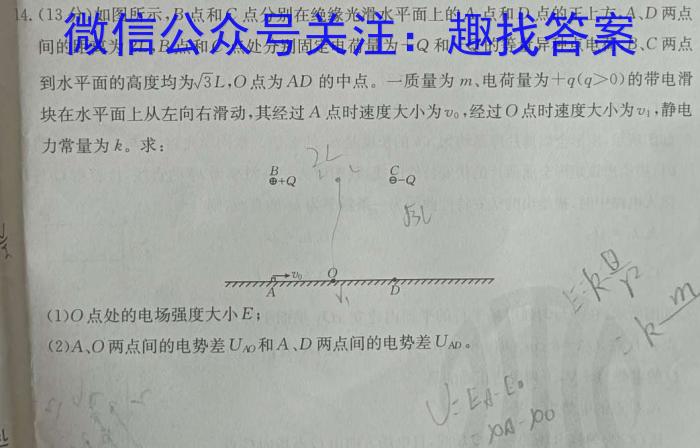 14.(13分)如图所示,B点和C点分别在绝缘光滑水平面上的A点和D点的正上方,A、D两点
间的
微信公众号关注：趣找答案
B、C两点
到水平面的高度均为√3L,O点为AD的中点。一质量为m、电荷量为+q(q>0)的带电滑
块在水平面上从左向右滑动,其经过A点时速度大小为v₀,经过O点时速度大小为v₁,静电
力常量为k。求:
2L
B
⊕+Q
C
⊖-Q
√3L
v₀
A
O
D
V₁
(1)O点处的电场强度大小E;
(2)A、O两点间的电势差U_AO和A、D两点间的电势差U_AD。
E=k Q/r²